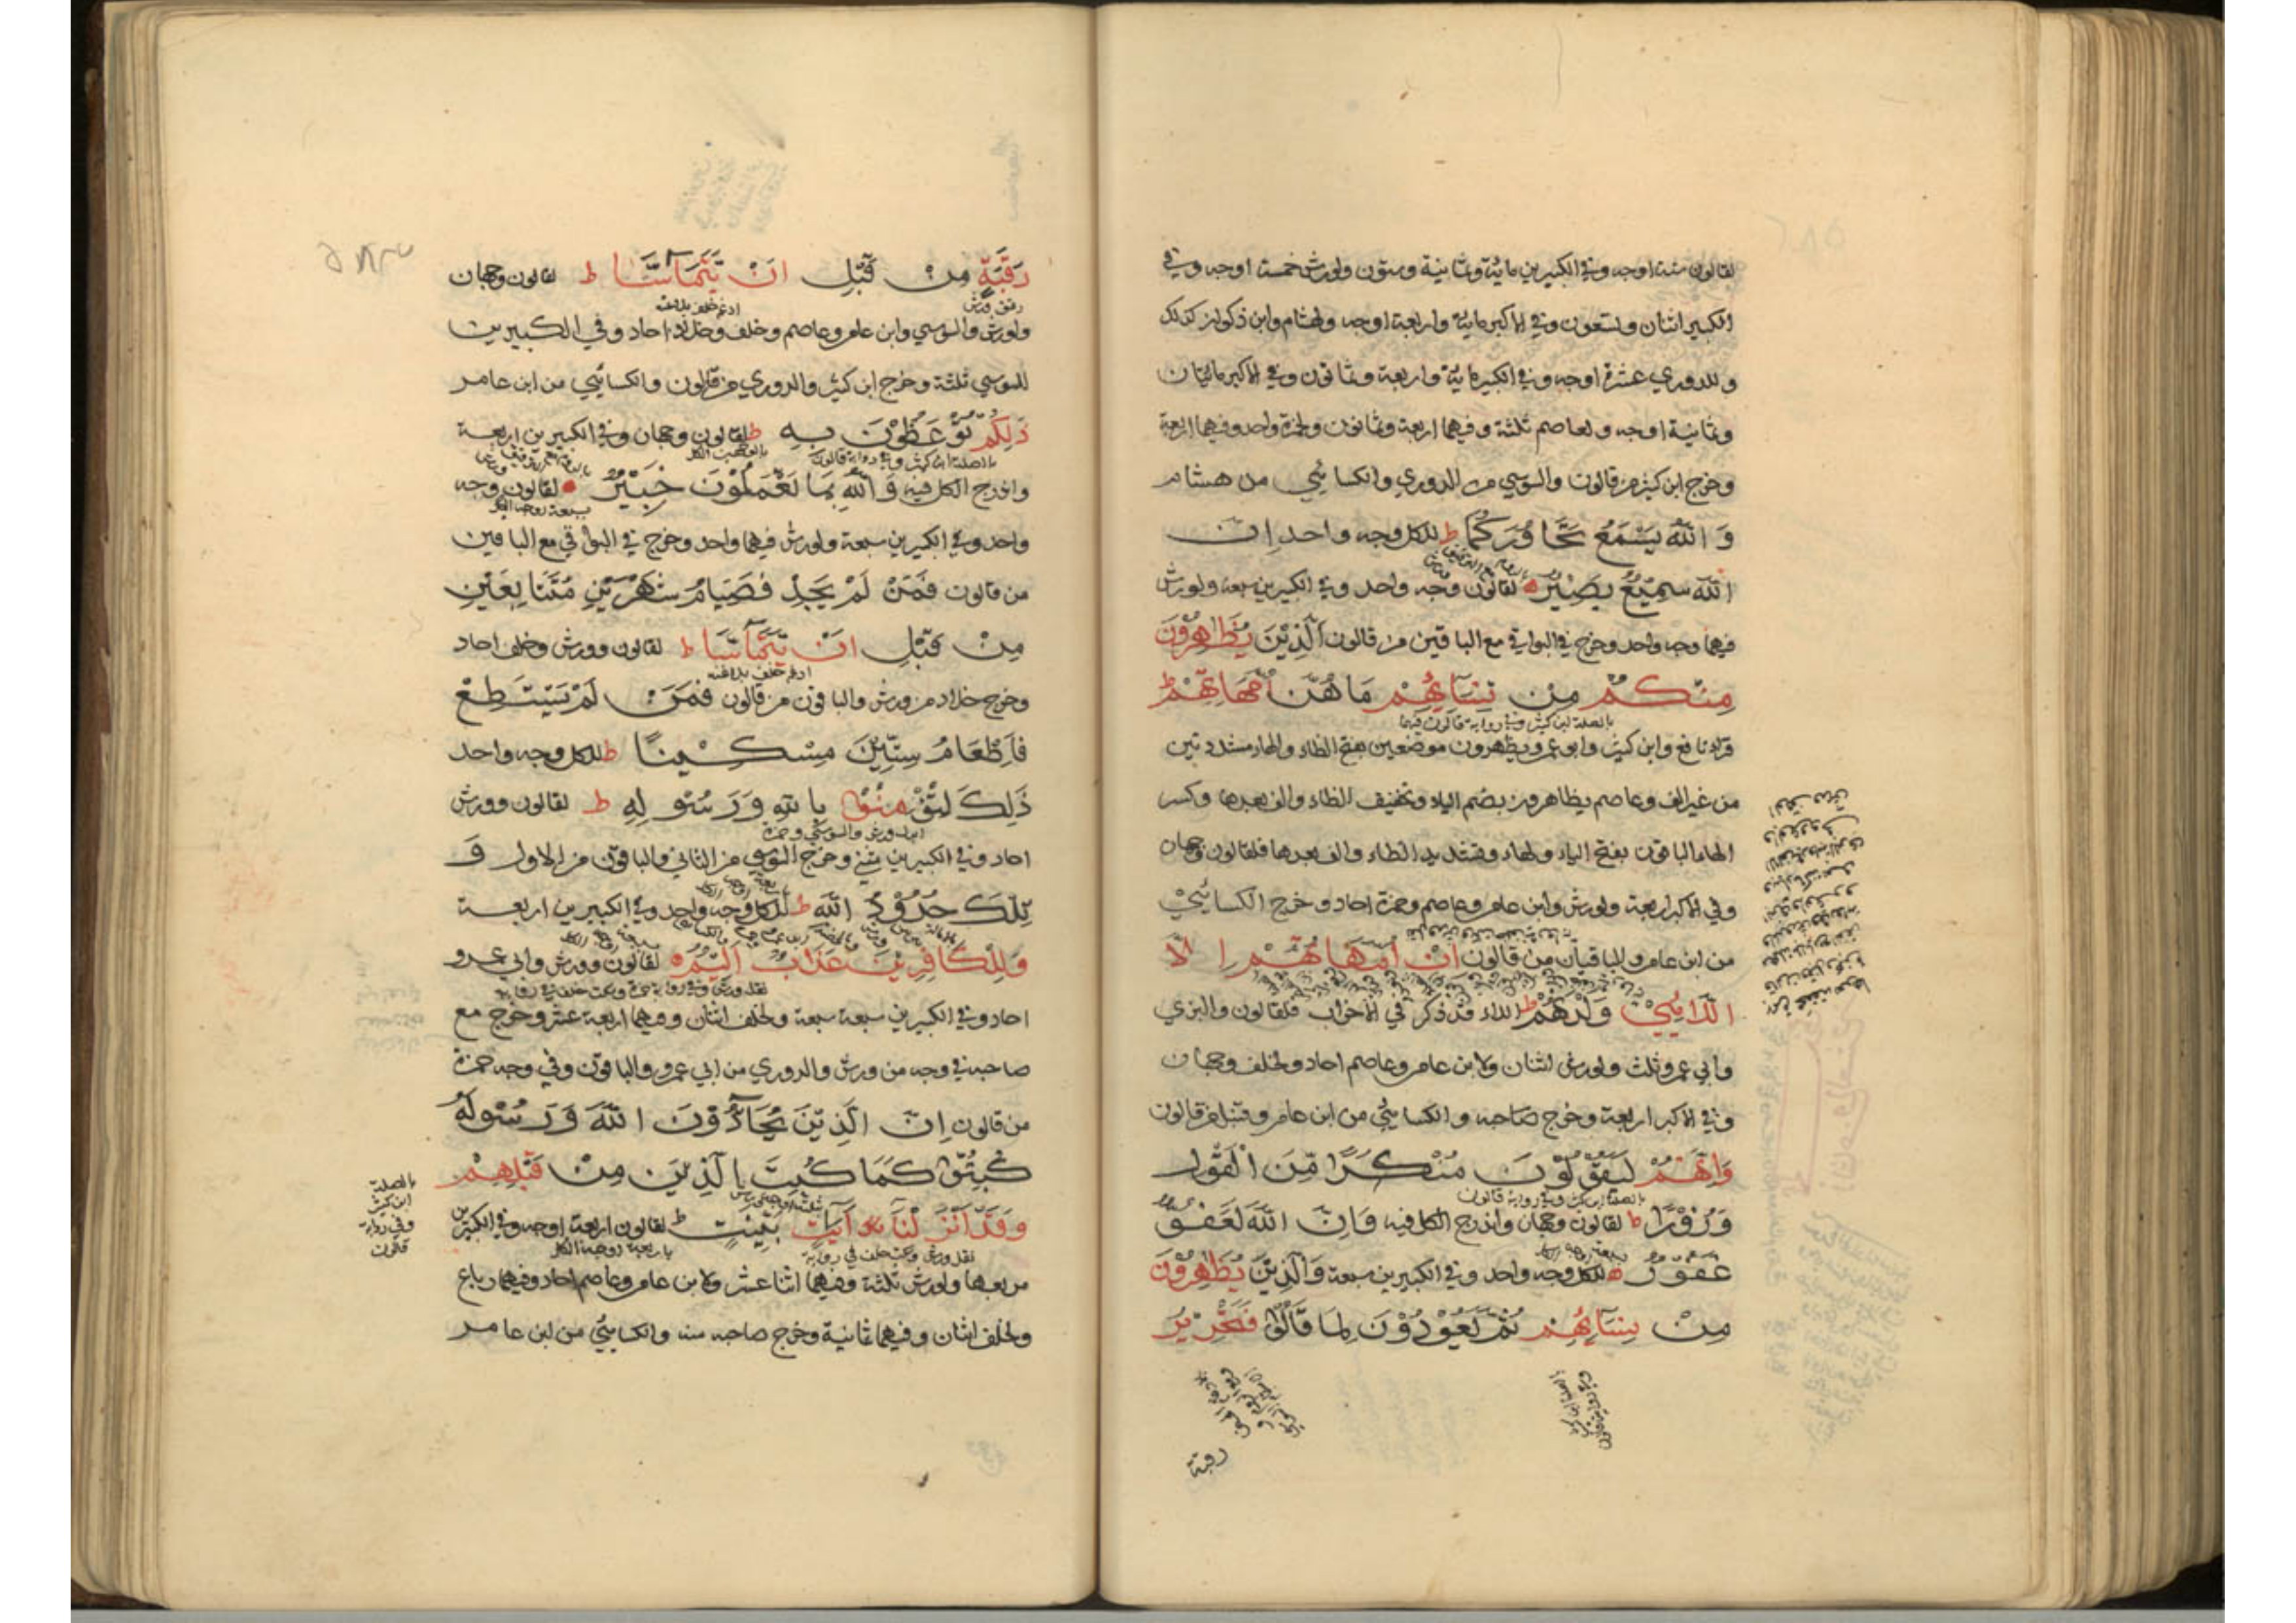 لقالون ستة اوجه وفي الكبيرين مائة وثمانية وستون ولورش خمسة اوجه وفي
الكبير اثنان وتسعون وفي الاكبر مائة واربعة اوجه ولهشام وابن ذكوان كذلك
وللدوري عشرة اوجه وفي الكبير مائة واربعة وثمانون وفي الاكبر مائتان
وثمانية اوجه ولعاصم ثلثة وفيهما اربعة وثمانون ولحمزة واحد وفيهما اربعة
وخرج ابن كثير من قالون والسوسي من الدوري والكسائي من هشام
وَاللَّهُ يَسْمَعُ تَحَاوُرَكُمَا ط للكل وجه واحد اِنَّ
اللَّهَ سَمِيعٌ بَصِيرٌ لقالون وجه واحد وفي الكبيرين سبعة ولورش
فيهما وجه واحد وخرج في البواقي مع الباقين من قالون اَلَّذِيْنَ يُظَاهِرُوْنَ
مِنْكُمْ مِنْ نِسَآئِهِمْ مَا هُنَّ اُمَّهَاتِهِمْ ط
بالصلة ابن كثير وفي رواية قالون فيهما
قراء نافع وابن كثير وابو عمرو يظهرون موضعين بفتح الظاء والهاء مشددتين
من غير الف وعاصم يظاهرون بضم الياء وتخفيف الظاء والف بعدها وكسر
الهاء الباقون بفتح الياء والهاء وتشديد الظاء والف بعدها فلقالون وجهان
وفي الاكبر اربعة ولورش وابن عامر وعاصم وحمزة احاد وخرج الكسائي
من ابن عامر والباقيان من قالون اِنْ اُمَّهَاتُهُمْ اِلَّا
الّٰائِيْ وَلَدْنَهُمْ ط اللاء قد ذكر في الاحزاب فلقالون والبزي
وابي عمرو ثلث ولورش اثنان ولابن عامر وعاصم احاد ولخلف وجهان
وفي الاكبر اربعة وخرج صاحبه والكسائي من ابن عامر وقنبل من قالون
وَاِنَّهُمْ لَيَقُوْلُوْنَ مُنْكَرًا مِّنَ الْقَوْلِ
بالصلة ابن كثير وفي رواية قالون
وَزُوْرًا ط لقالون وجهان واندرج الكل فيه وَاِنَّ اللَّهَ لَعَفُوٌّ
غَفُوْرٌ للكل وجه واحد وفي الكبيرين سبعة وَالَّذِيْنَ يُظَاهِرُوْنَ
مِنْ نِسَآئِهِمْ ثُمَّ يَعُوْدُوْنَ لِمَا قَالُوْا فَتَحْرِيْرُ
رقبة
رَقَبَةٍ مِنْ قَبْلِ اَنْ يَّتَمَآسَّا ط لقالون وجهان
رقق ورش
ادغم خلف بلا غنه
ولورش والسوسي وابن عامر وعاصم وخلف وخلاد احاد وفي الكبيرين
للسوسي ثلثة وخرج ابن كثير والدوري من قالون والكسائي من ابن عامر
ذٰلِكُمْ تُوْعَظُوْنَ بِهِ ط لقالون وجهان وفي الكبيرين اربعة
بالصلة ابن كثير وفي رواية قالون
واندرج الكل فيه وَاللَّهُ بِمَا تَعْمَلُوْنَ خَبِيْرٌ لقالون وجه
واحد وفي الكبيرين سبعة ولورش فيهما واحد وخرج في البواقي مع الباقين
من قالون فَمَنْ لَمْ يَجِدْ فَصِيَامُ شَهْرَيْنِ مُتَتَابِعَيْنِ
مِنْ قَبْلِ اَنْ يَّتَمَآسَّا ط لقالون وورش وخلف احاد
ادغم خلف بلا غنه
وخرج خلاد من ورش والباقون من قالون فَمَنْ لَمْ يَسْتَطِعْ
فَاِطْعَامُ سِتِّيْنَ مِسْكِيْنًا ط للكل وجه واحد
ذَلِكَ لِتُؤْمِنُوْا بِاللَّهِ وَرَسُوْلِهِ ط لقالون وورش
ابدل ورش والسوسي وحمزة
احاد وفي الكبيرين مثنى وخرج السوسي من الثاني والباقون من الاول وَ
تِلْكَ حُدُوْدُ اللَّهِ ط للكل وجه واحد وفي الكبيرين اربعة
وَلِلْكَافِرِيْنَ عَذَابٌ اَلِيْمٌ لقالون وورش وابي عمرو
احاد وفي الكبيرين سبعة سبعة ولخلف اثنان وفيهما اربعة عشر وخرج مع
صاحبه في وجه من ورش والدوري من ابي عمرو والباقون وفي وجه حمزة
من قالون اِنَّ الَّذِيْنَ يُحَآدُّوْنَ اللَّهَ وَرَسُوْلَهُ
كُبِتُوْا كَمَا كُبِتَ الَّذِيْنَ مِنْ قَبْلِهِمْ
بالصلة
ابن كثير
وفي رواية
قالون
وَقَدْ اَنْزَلْنَا آيَاتٍ بَيِّنٰتٍ ط لقالون اربعة اوجه وفي الكبيرين
نقل ورش وسكت خلف في رواية
مربعها ولورش ثلثة وفيهما اثنا عشر ولابن عامر وعاصم احاد وفيهما رباع
ولخلف اثنان وفيهما ثمانية وخرج صاحبه منه والكسائي من ابن عامر